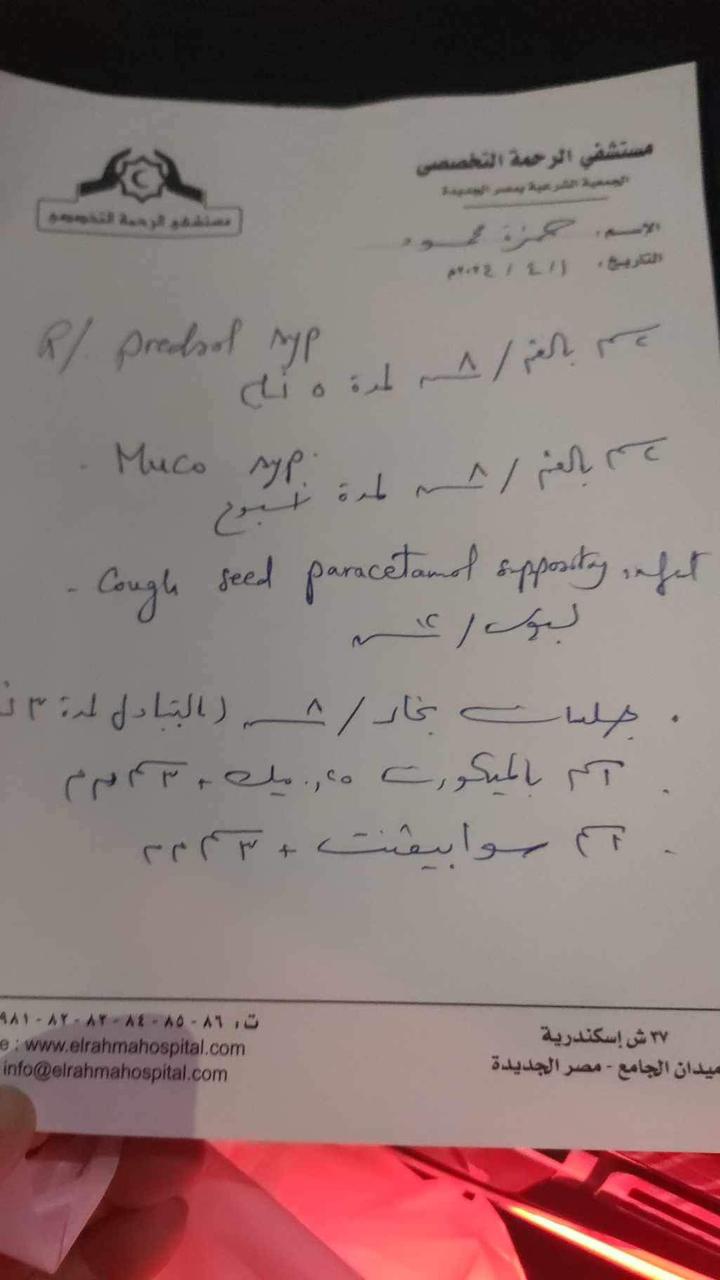 مستشفي الرحمة التخصصى
الجمعية الشرعية بمصر الجديدة
مستشفى الرحمة التخصصى
الاسم: حمزة محمود
التاريخ: ١ / ٤ / ٢٠٢٤م
R/. predsol syp
٢سم بالفم / ٨ س لمدة ٥ أيام
- Muco syp.
٢سم بالفم / ٨ س لمدة أسبوع
- Cough seed paracetamol suppository infant
لبوس / ١٢ س
. جلسات بخار / ٨ س (بالتبادل لمدة ٣
. ١سم بالميكورت ٠,٢٥ + ٣سم
. ١سم سوابيفنت + ٣سم
ت: ٨٦ - ٨٥ - ٨٤ - ٨٣ - ٨٢ - ٩٨١
e : www.elrahmahospital.com
info@elrahmahospital.com
٢٧ ش إسكندرية
ميدان الجامع - مصر الجديدة